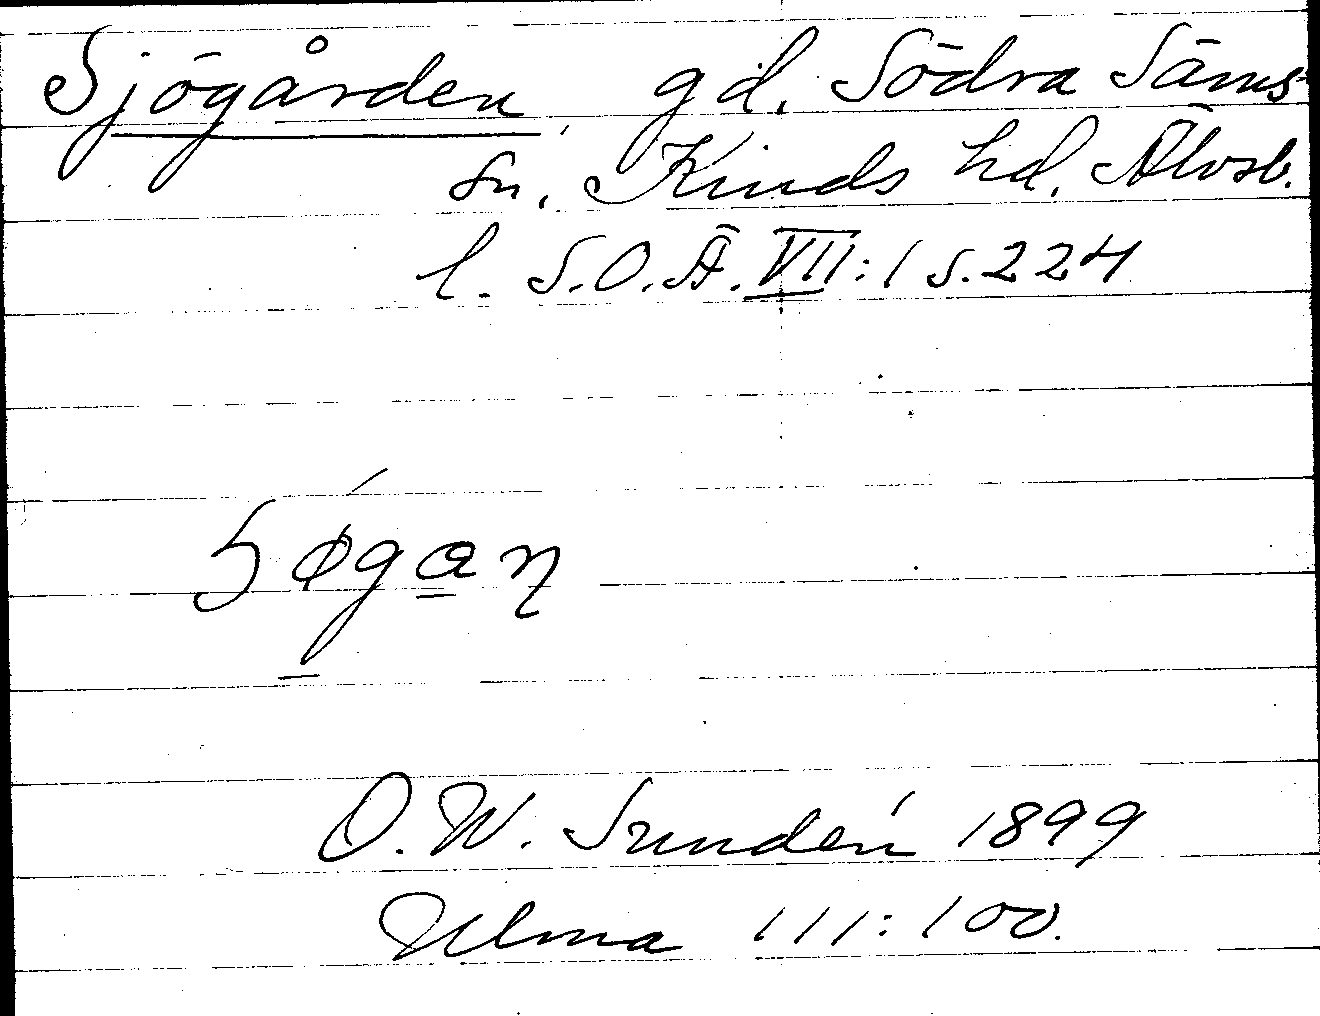 Sjögården, gd. Södra Säms
sn. Kinds hd. Älvsb.
l. S.O.Ä. VII:1 s. 224
O. W. Sundén 1899
Ulma 111:100.